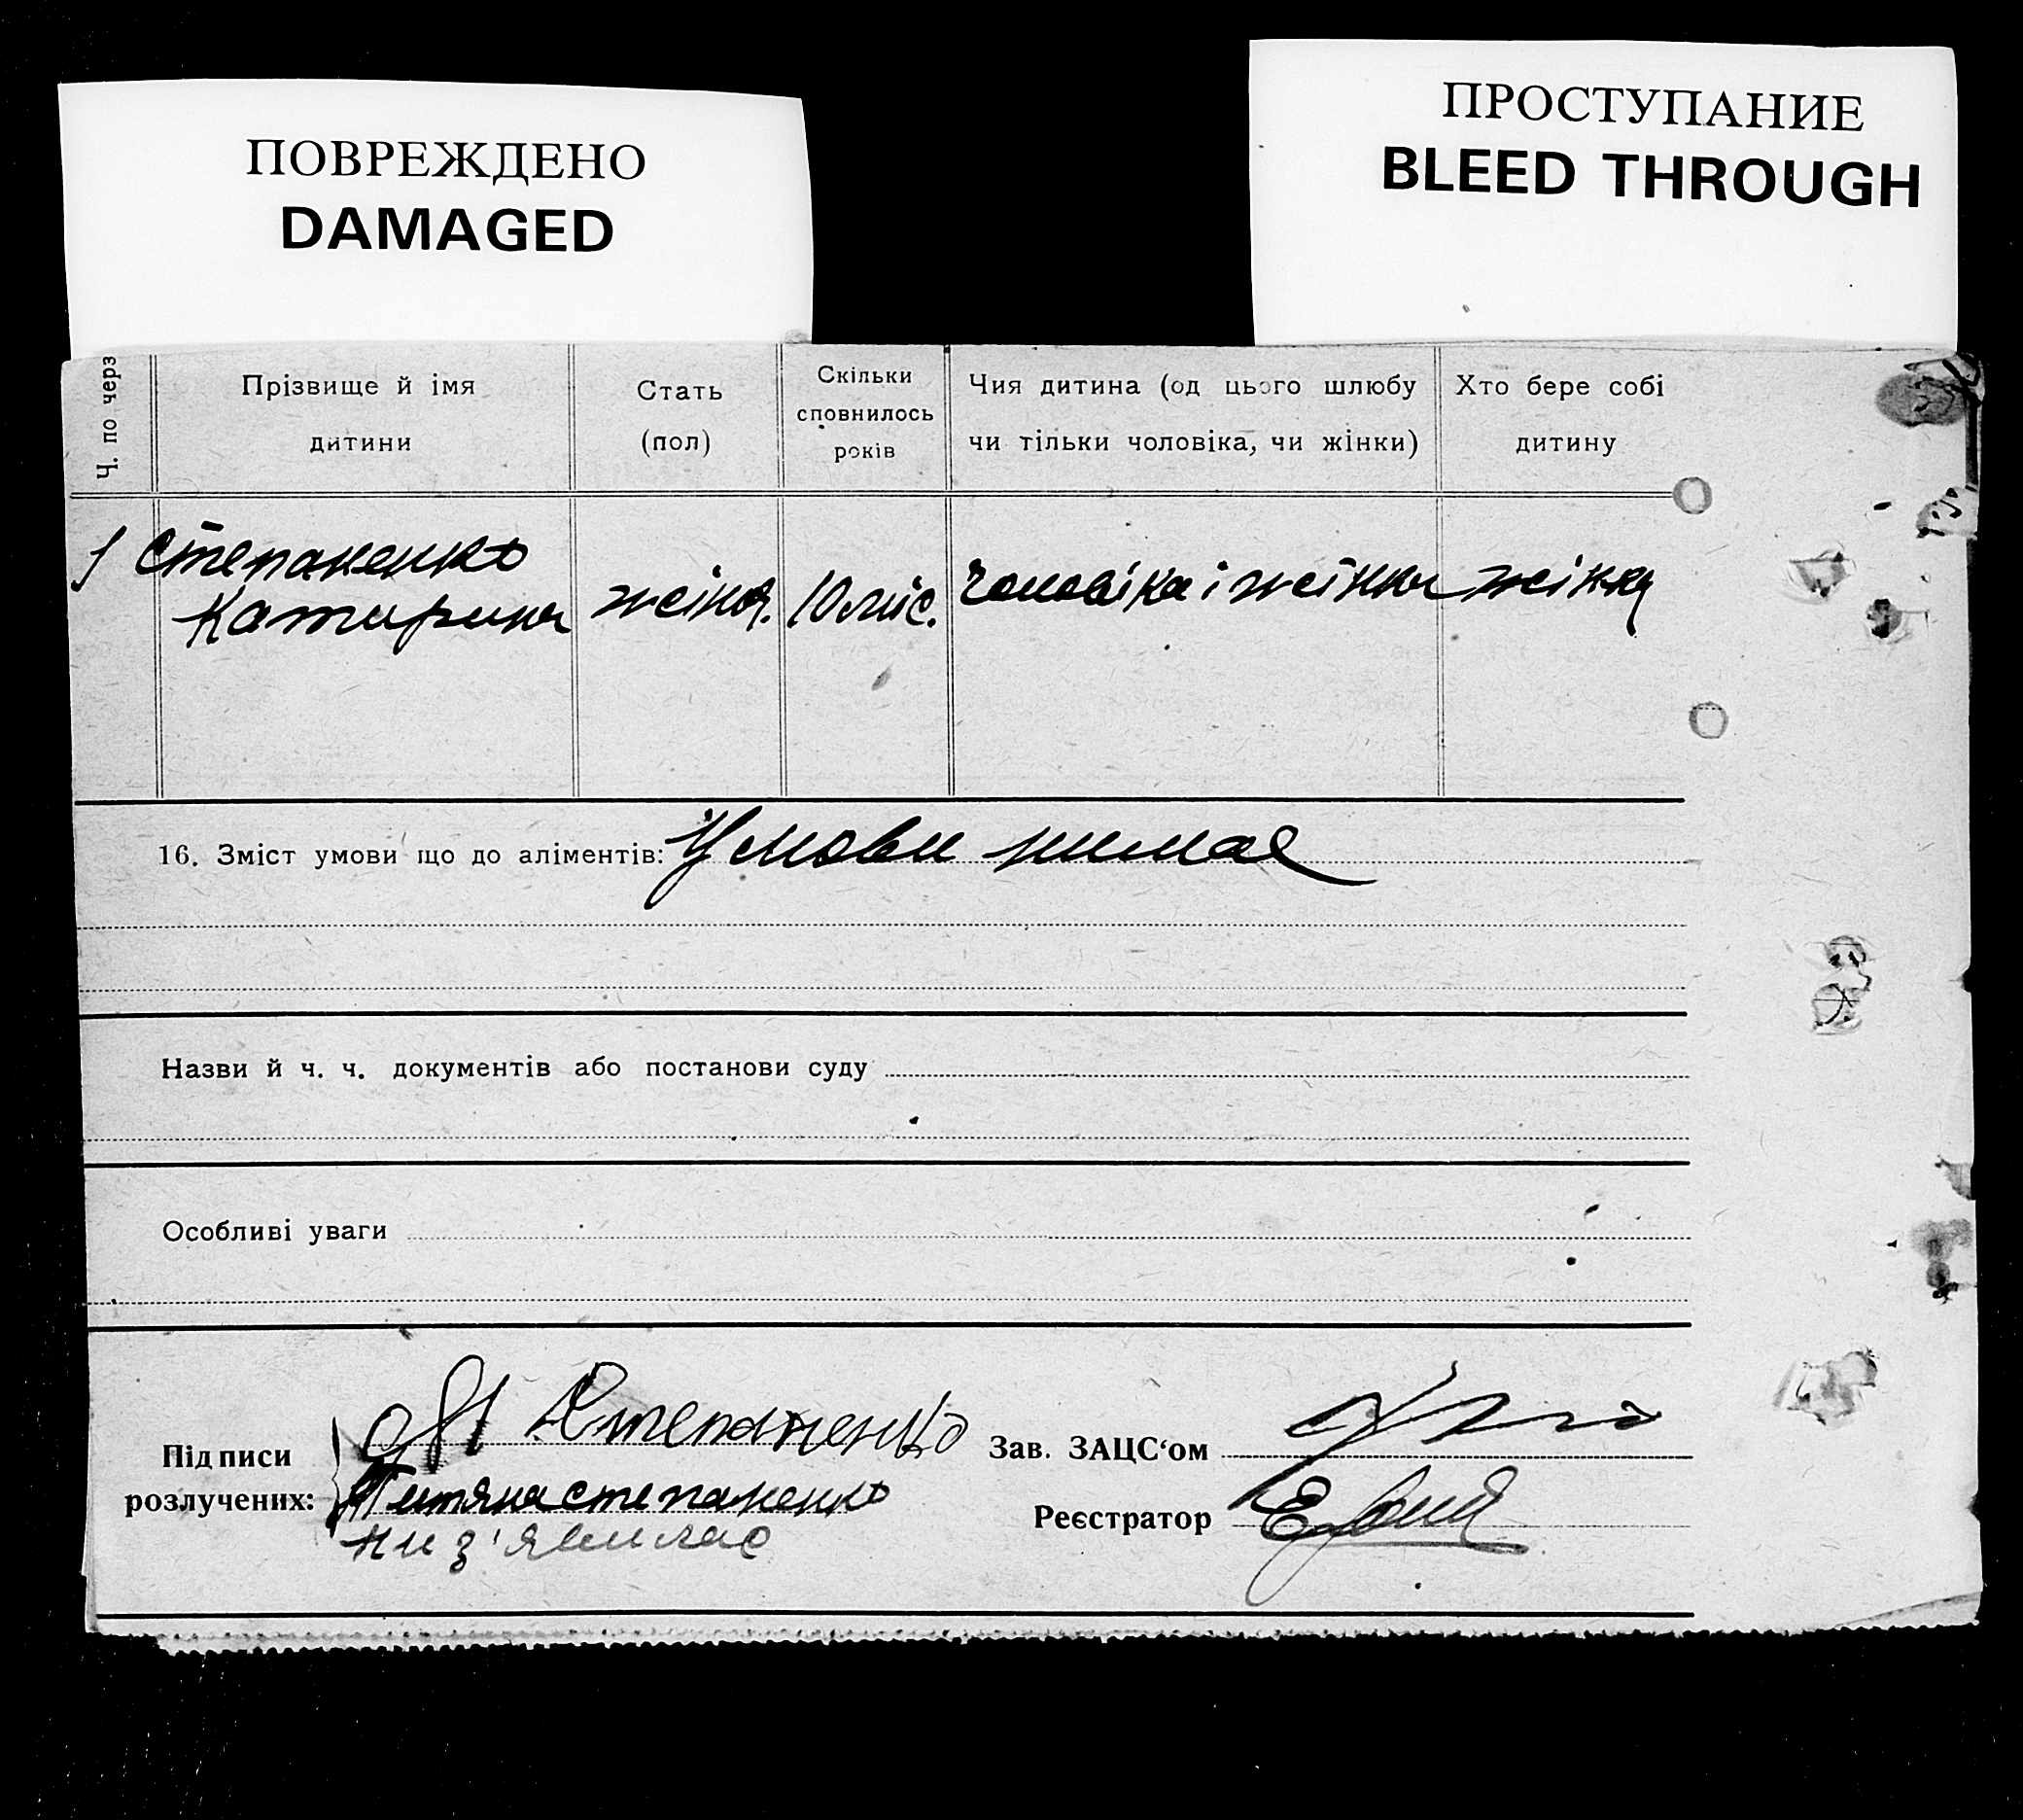 ПОВРЕЖДЕНО
DAMAGED
ПРОСТУПАНИЕ
BLEED THROUGH
Ч. по черз
Прізвище й імя
дитини
Стать
(пол)
Скільки
сповнилось
років
Чия дитина (од цього шлюбу
чи тільки чоловіка, чи жінки)
Хто бере собі
дитину
1 Степаненко
Катирина
жіноч.
10 міс.
Чоловіка і жінки
жінка
16. Зміст умови що до аліментів: Умови нимає
Назви й ч. ч. документів або постанови суду
Особливі уваги
Підписи
розлучених:
Степаненко
Титяна степаненко
ни з'явилас
Зав. ЗАЦС‘ом
Реєстратор